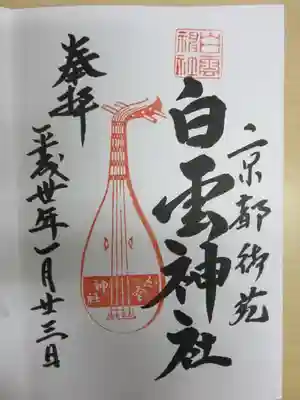 京都御苑
白雲神社
白雲
神社
白雲
神社
奉拝
平成丗年一月廿三日